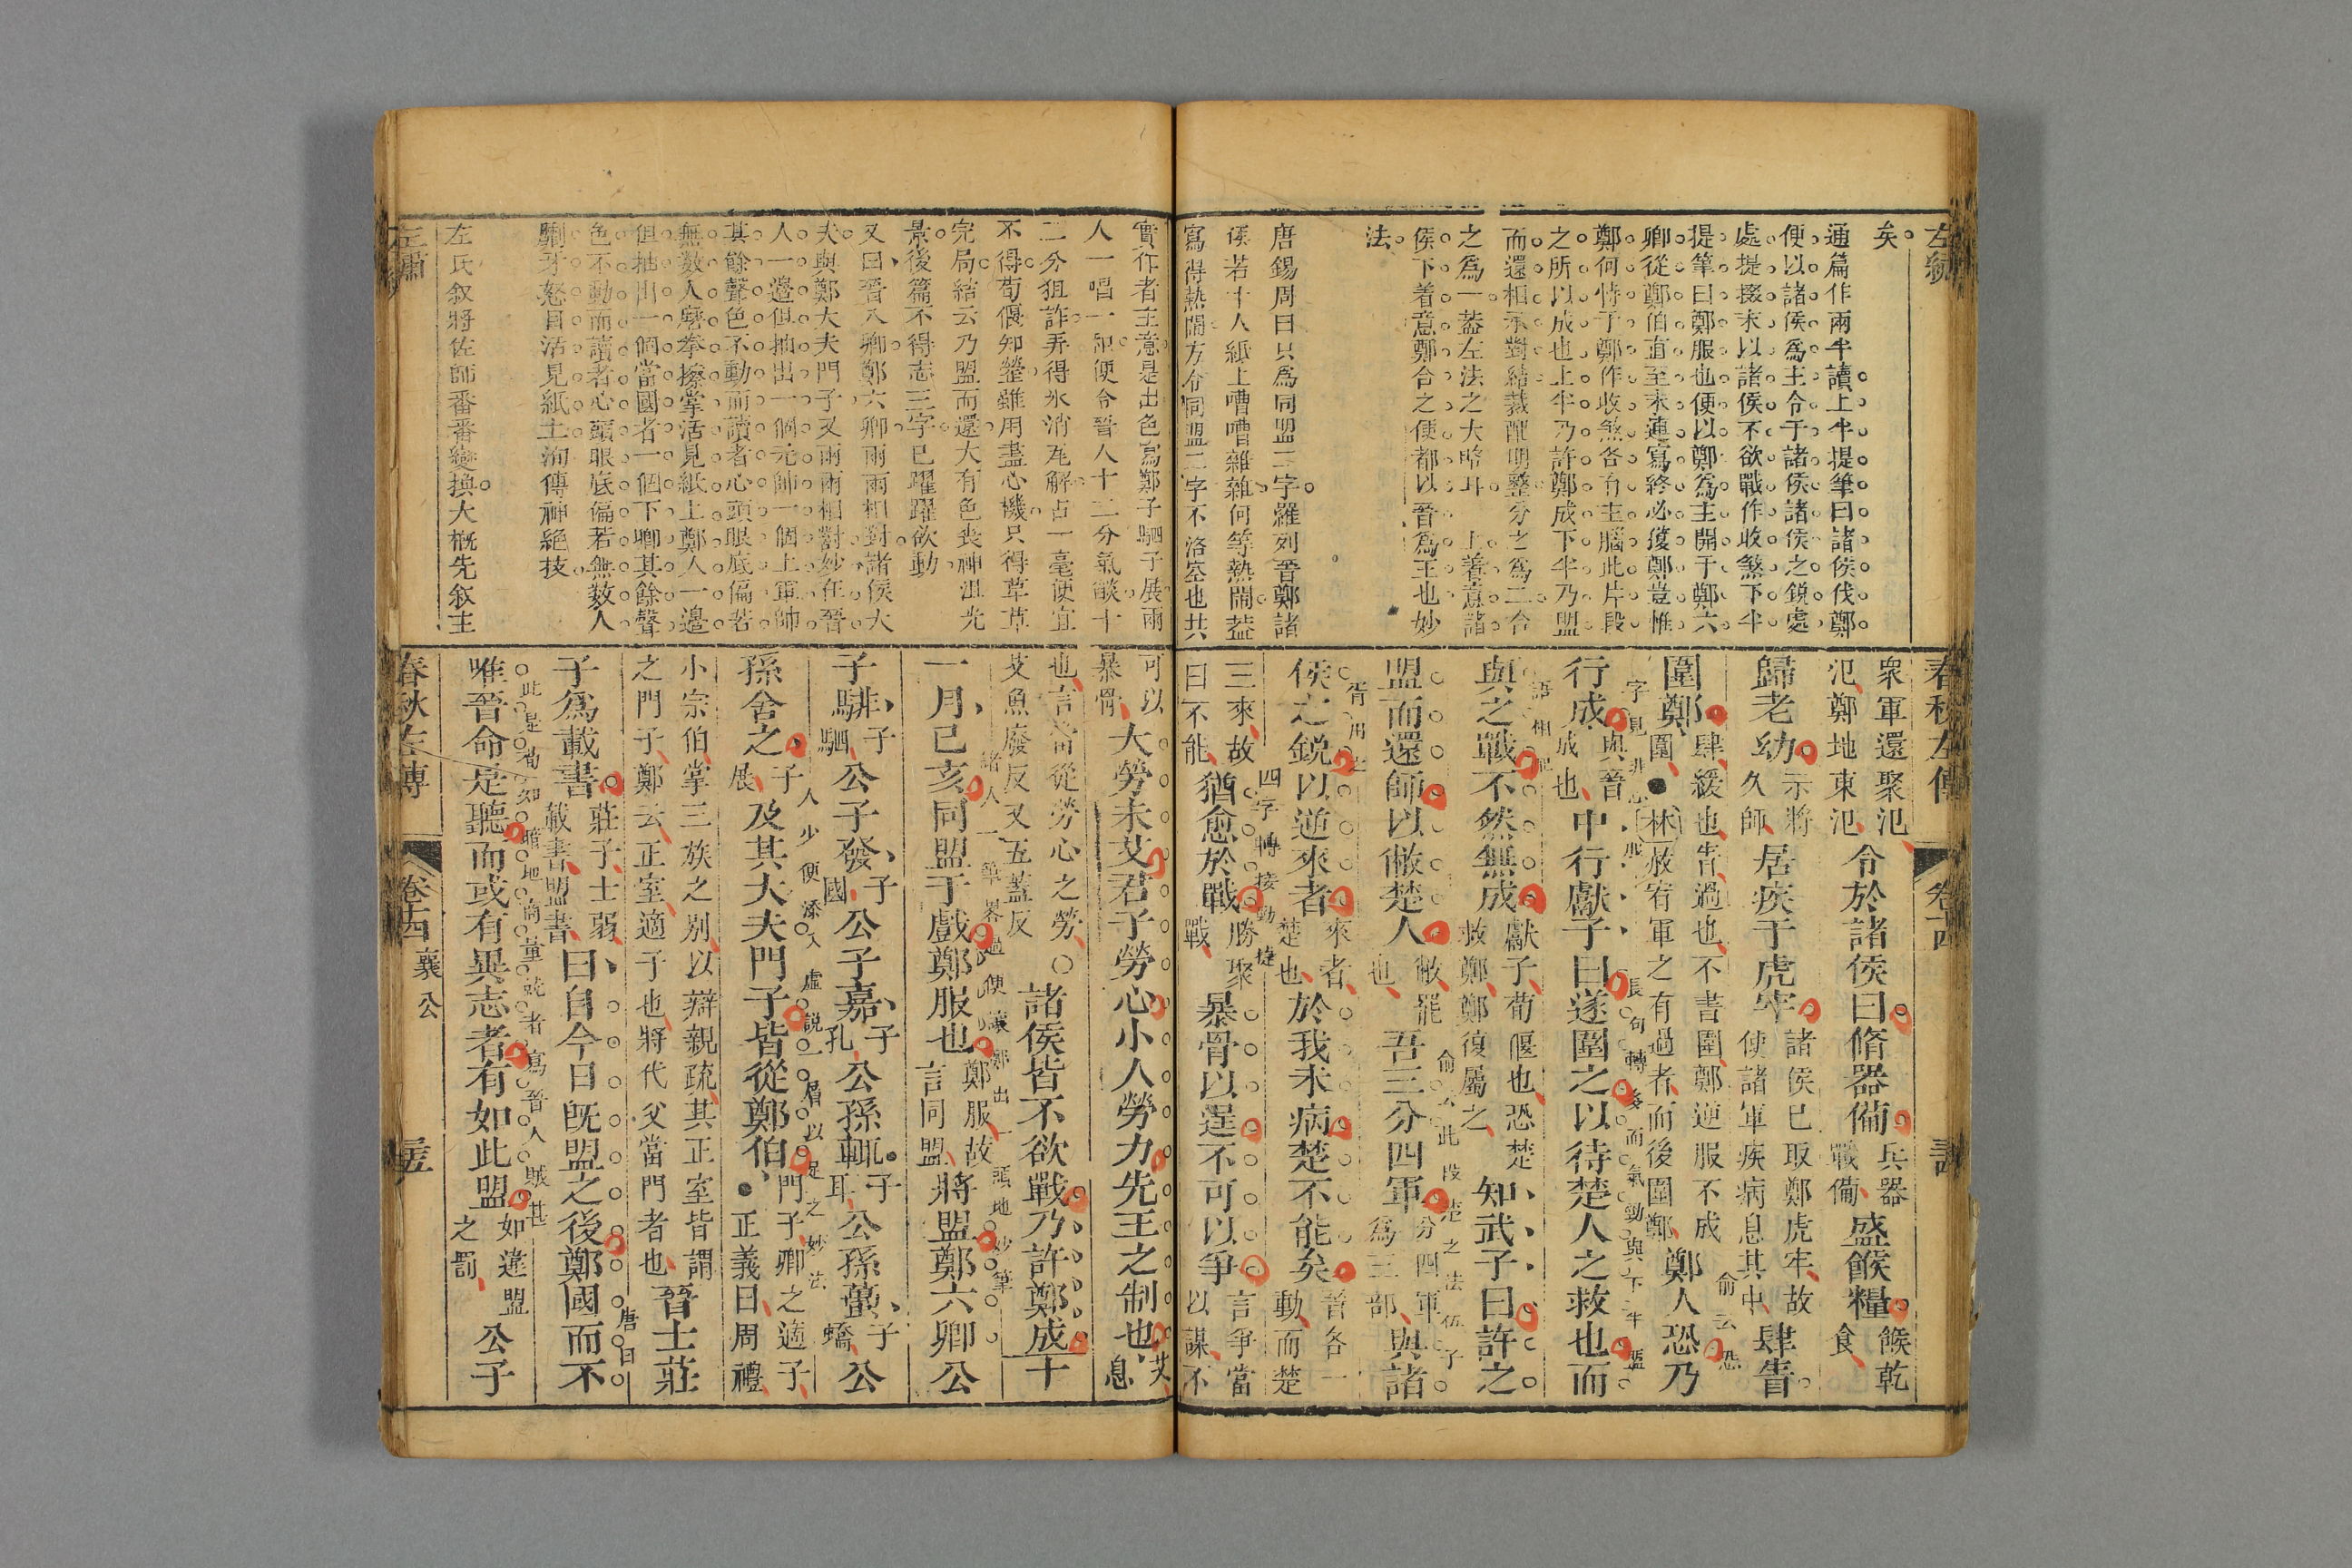 左繡
矣
通篇作兩半讀上半提筆曰諸侯伐鄭
便以諸侯爲主令于諸侯諸侯之銳處
處提掇末以諸侯不欲戰作收煞下半
提筆曰鄭服也便以鄭爲主開于鄭六
卿從鄭伯直至末連寫終必獲鄭豈惟
鄭何恃于鄭作收煞各有主腦此片段
之所以成也上半乃許鄭成下半乃盟
而還相承對結裁配明整分之爲二合
之爲一蓋左法之大略耳 上著意諸
侯下着意鄭合之便都以晉爲主也妙
法
唐錫周曰只爲同盟二字羅列晉鄭諸
侯若干人紙上嘈嘈雜雜何等熱鬧葢
寫得熱鬧方令同盟二字不落空也其
春秋左傳 卷十四
衆軍還聚氾
氾鄭地東氾
令於諸侯曰脩器備
兵器
戰備
盛餱糧
餱乾
食
歸老幼
示將
久師
居疾于虎牢
諸侯已取鄭虎牢故
使諸軍疾病息其中
肆眚
圍鄭
肆緩也眚過也不書圍鄭逆服不成
圍●林赦宥軍之有過者而後圍鄭
鄭人恐乃
俞云恐
行成
與晉
成也
中行獻子曰遂圍之以待楚人之救也而
長句轉多而氣勁與下半盟
與之戰不然無成
獻子荀偃也恐楚
救鄭鄭復屬之
知武子曰許之
盟而還師以敝楚人
敝罷
也
吾三分四軍
分四軍
爲三部
與諸
俞云此段楚之法伍子
胥用之
侯之銳以逆來者
來者
楚也
於我未病楚不能矣
晉各一
動而楚
四字轉接勁捷
三來故
曰不能
猶愈於戰
勝聚
戰
暴骨以逞不可以爭
言爭當
以謀不
實作者主意是出色寫鄭子駟子展兩
人一唱一和便令晉人十二分氣談十
二分狙詐弄得氷消瓦解占一毫便宜
不得荀偃知罃雖用盡心機只得草草
完局結云乃盟而還大有色喪神沮光
景後篇不得志三字已躍躍欲動
又曰晉八卿鄭六卿兩兩相對諸侯大
夫與鄭大夫門子又兩兩相對妙在晉
人一邉但抽出一個元帥一個上軍帥
其餘聲色不動而讀者心頭眼底偏若
無數人磨拳擦掌活見紙上鄭人一邉
但抽出一個當國者一個下卿其餘聲
色不動而讀者心頭眼底偏若無數人
䶩牙怒目活見紙上洵傳神絕技
左氏叙將佐師番番變換大槪先叙主
可以
暴骨
大勞未艾君子勞心小人勞力先王之制也
艾
息
也言當從勞心之勞○
艾魚廢反又五蓋反
諸侯皆不欲戰乃許鄭成十
一月己亥同盟于戲鄭服也
鄭服故
言同盟
將盟鄭六卿公
諸人一筆畧過便讓鄭出一頭地妙筆
子騑
子
駟
公子發
子
國
公子嘉
子
孔
公孫輒
子
耳
公孫蠆
子
蟜
公
孫舍之
子
展
及其大夫門子皆從鄭伯
門子卿之適子
●正義曰周禮
人少便添入虛說一層以足之妙法
小宗伯掌三族之別以辯親疏其正室皆謂
之門子鄭云正室適子也將代父當門者也
晉士莊
子爲載書
莊子士弱
載書盟書
曰自今日旣盟之後鄭國而不
唐曰
此是荀知雖地商量就者寫晉人賬甚
唯晉命是聽而或有異志者有如此盟
如違盟
之罰
公子
左繡
春秋左傳 卷十四 襄公